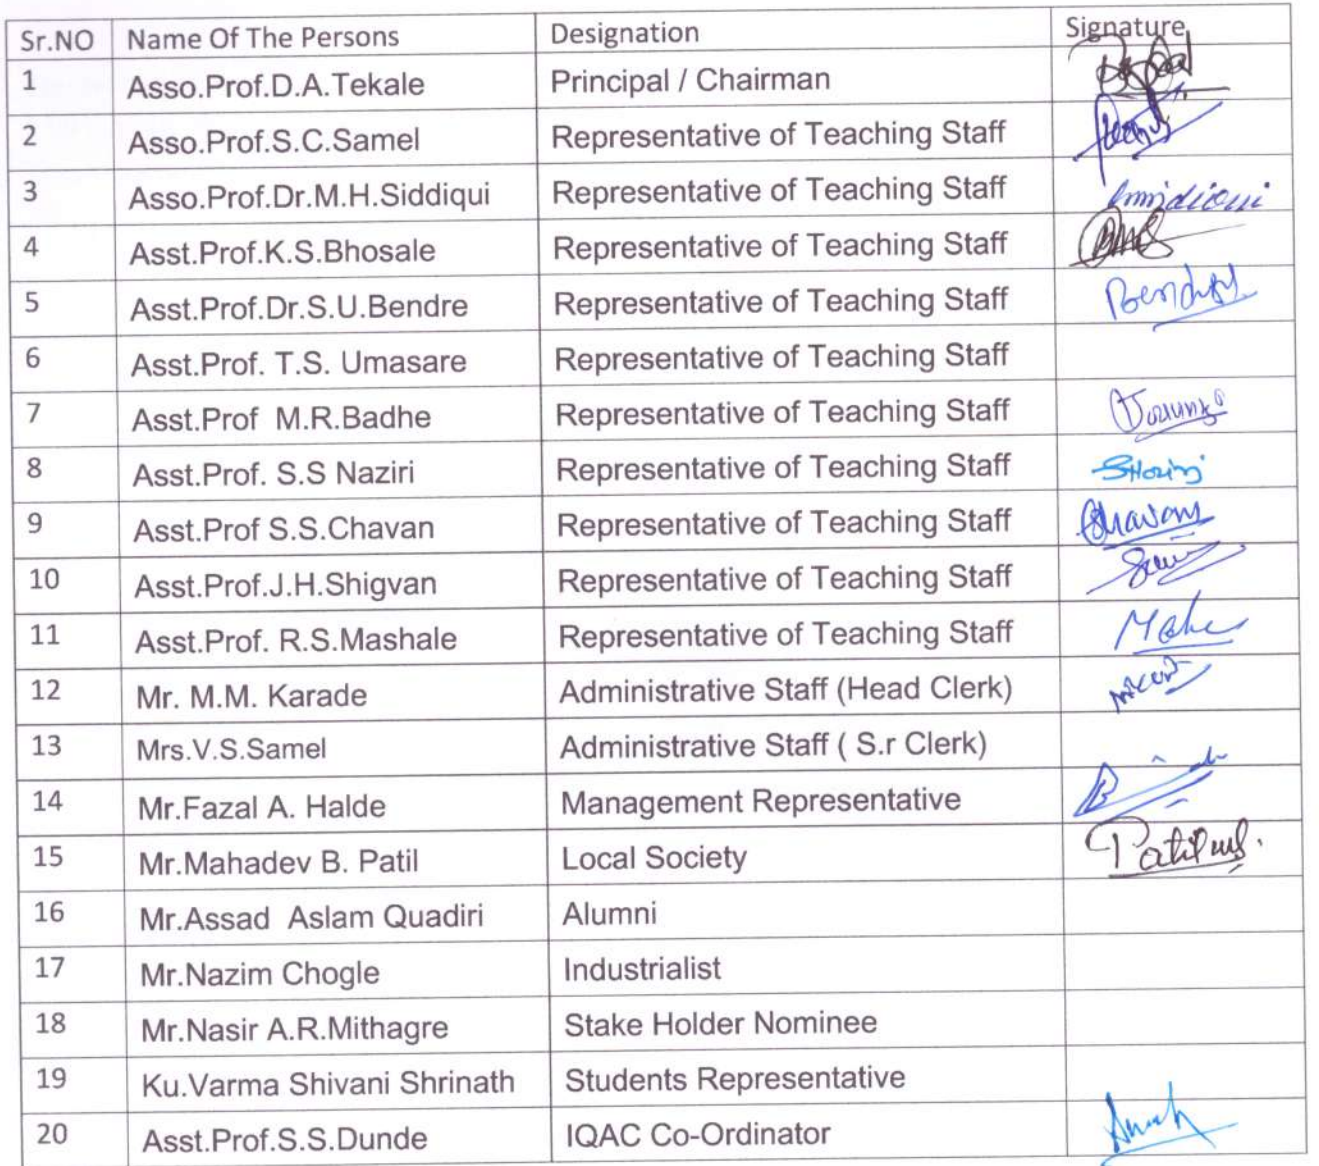 Sr.NO Name Of The Persons Designation Signature
1 Asso.Prof.D.A.Tekale Principal / Chairman
2 Asso.Prof.S.C.Samel Representative of Teaching Staff
3 Asso.Prof.Dr.M.H.Siddiqui Representative of Teaching Staff
4 Asst.Prof.K.S.Bhosale Representative of Teaching Staff
5 Asst.Prof.Dr.S.U.Bendre Representative of Teaching Staff
6 Asst.Prof. T.S. Umasare Representative of Teaching Staff
7 Asst.Prof M.R.Badhe Representative of Teaching Staff
8 Asst.Prof. S.S Naziri Representative of Teaching Staff
9 Asst.Prof S.S.Chavan Representative of Teaching Staff
10 Asst.Prof.J.H.Shigvan Representative of Teaching Staff
11 Asst.Prof. R.S.Mashale Representative of Teaching Staff
12 Mr. M.M. Karade Administrative Staff (Head Clerk)
13 Mrs.V.S.Samel Administrative Staff ( S.r Clerk)
14 Mr.Fazal A. Halde Management Representative
15 Mr.Mahadev B. Patil Local Society
16 Mr.Assad Aslam Quadiri Alumni
17 Mr.Nazim Chogle Industrialist
18 Mr.Nasir A.R.Mithagre Stake Holder Nominee
19 Ku.Varma Shivani Shrinath Students Representative
20 Asst.Prof.S.S.Dunde IQAC Co-Ordinator